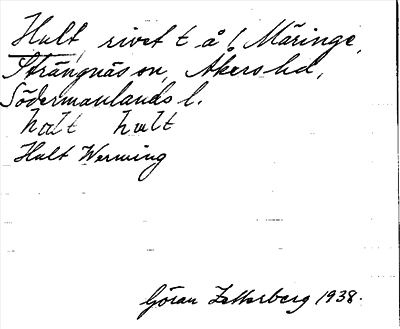 Hult, rivet t å! Märinge,
Strängnäs sn, Åkers hd,
Södermanlands l.
hult hult
Hult Werming
Göran Zetterberg 1938.